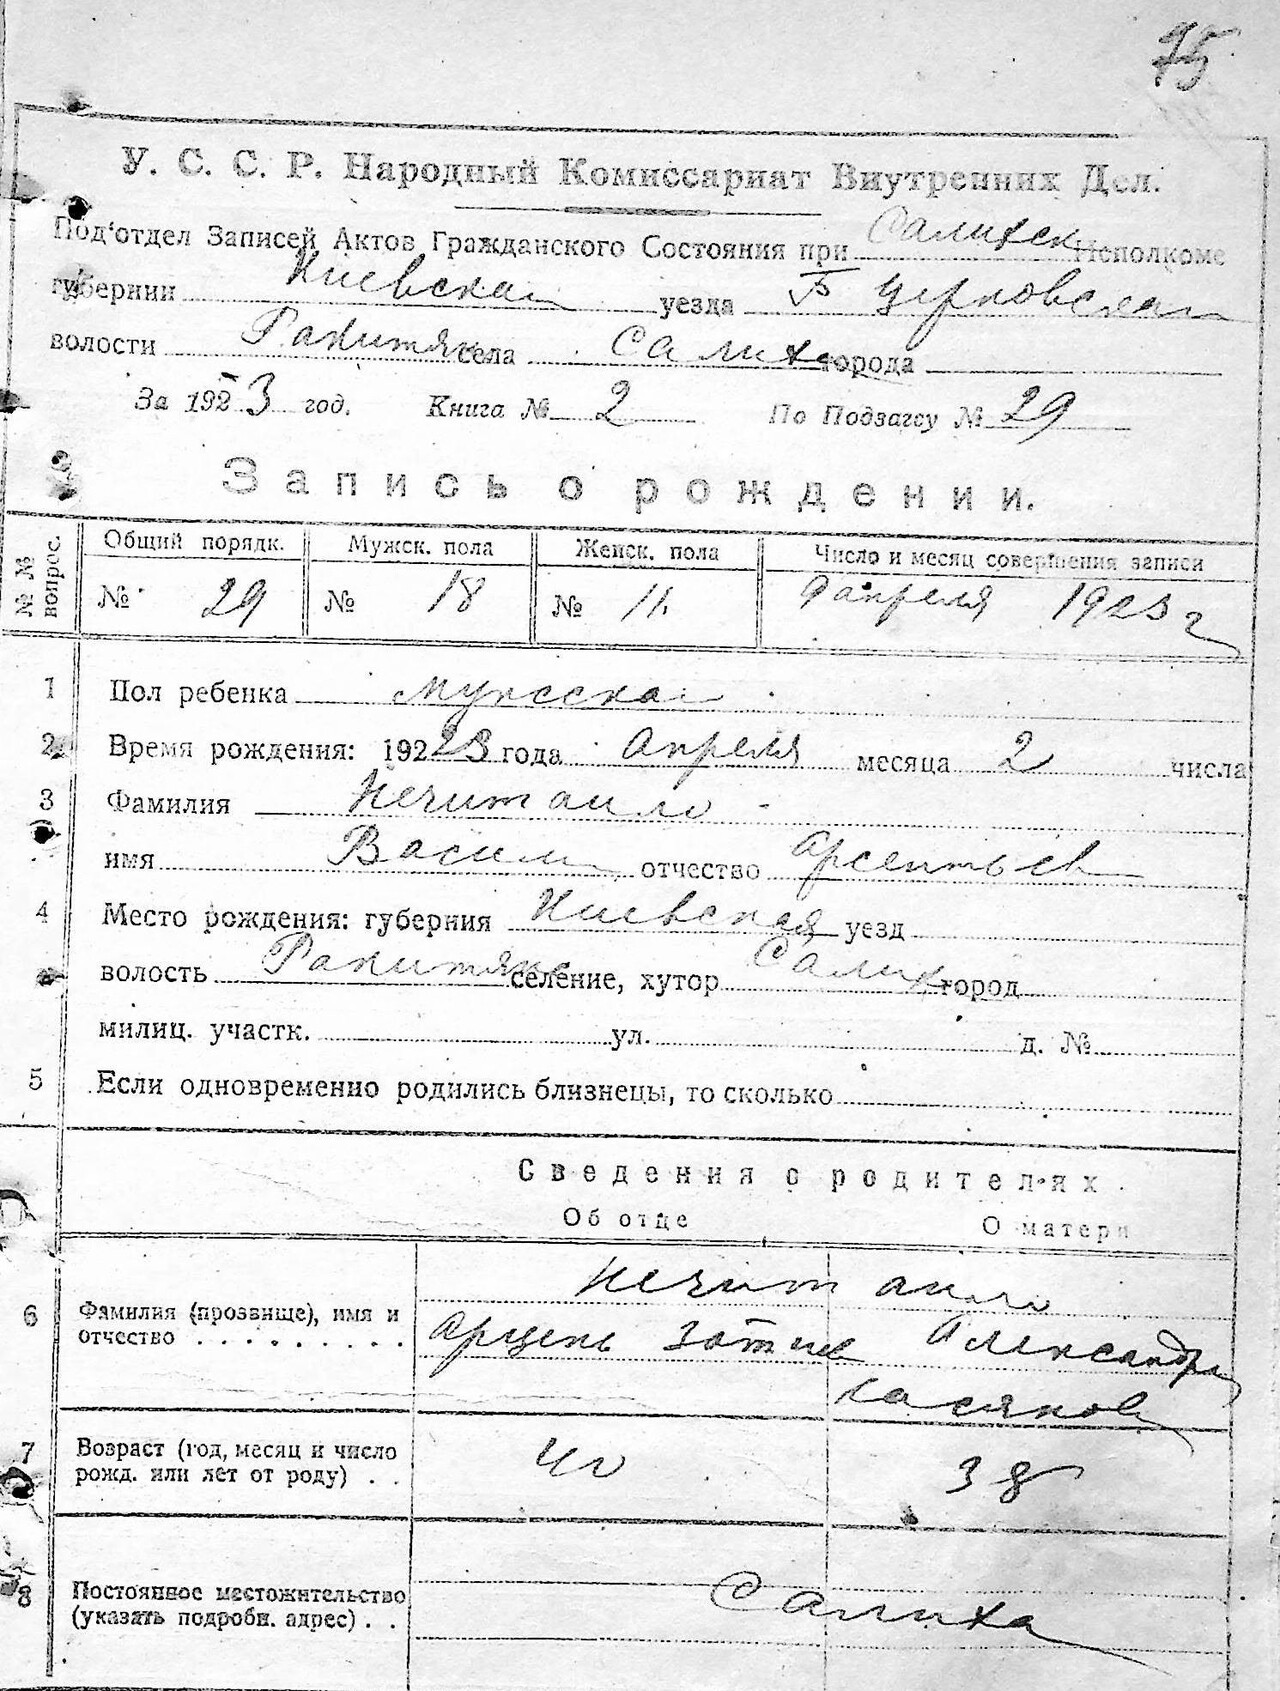 75
У. С. С. Р. Народный Комиссариат Внутренних Дел.
Под'отдел Записей Актов Гражданского Состояния при Салихск Исполкоме
губернии Киевская уезда Б Церковская
волости Ракитянс села Салиха города
За 1923 год. Книга № 2 По Подзагсу № 29
Запись о рождении.
№ № вопрос. Общий порядк. Мужск. пола Женск. пола Число и месяц совершения записи
№ 29 № 18 № 11. 9 апреля 1923 г
1 Пол ребенка мужеская
2 Время рождения: 19223 года Апреля месяца 2 числа
3 Фамилия Нечитаило
имя Васили отчество Арсентьев
4 Место рождения: губерния Киевская уезд
волость Ракитянс селение, хутор Салих город
милиц. участк. ул. д. №
5 Если одновременно родились близнецы, то сколько
Сведения о родителях.
Об отце О матери
6 Фамилия (прозвище), имя и отчество Нечитаило
Арцень Александра
Касянов
7 Возраст (год, месяц и число рожд. или лет от роду) 40 38
8 Постоянное местожительство (указать подробн. адрес) Салиха